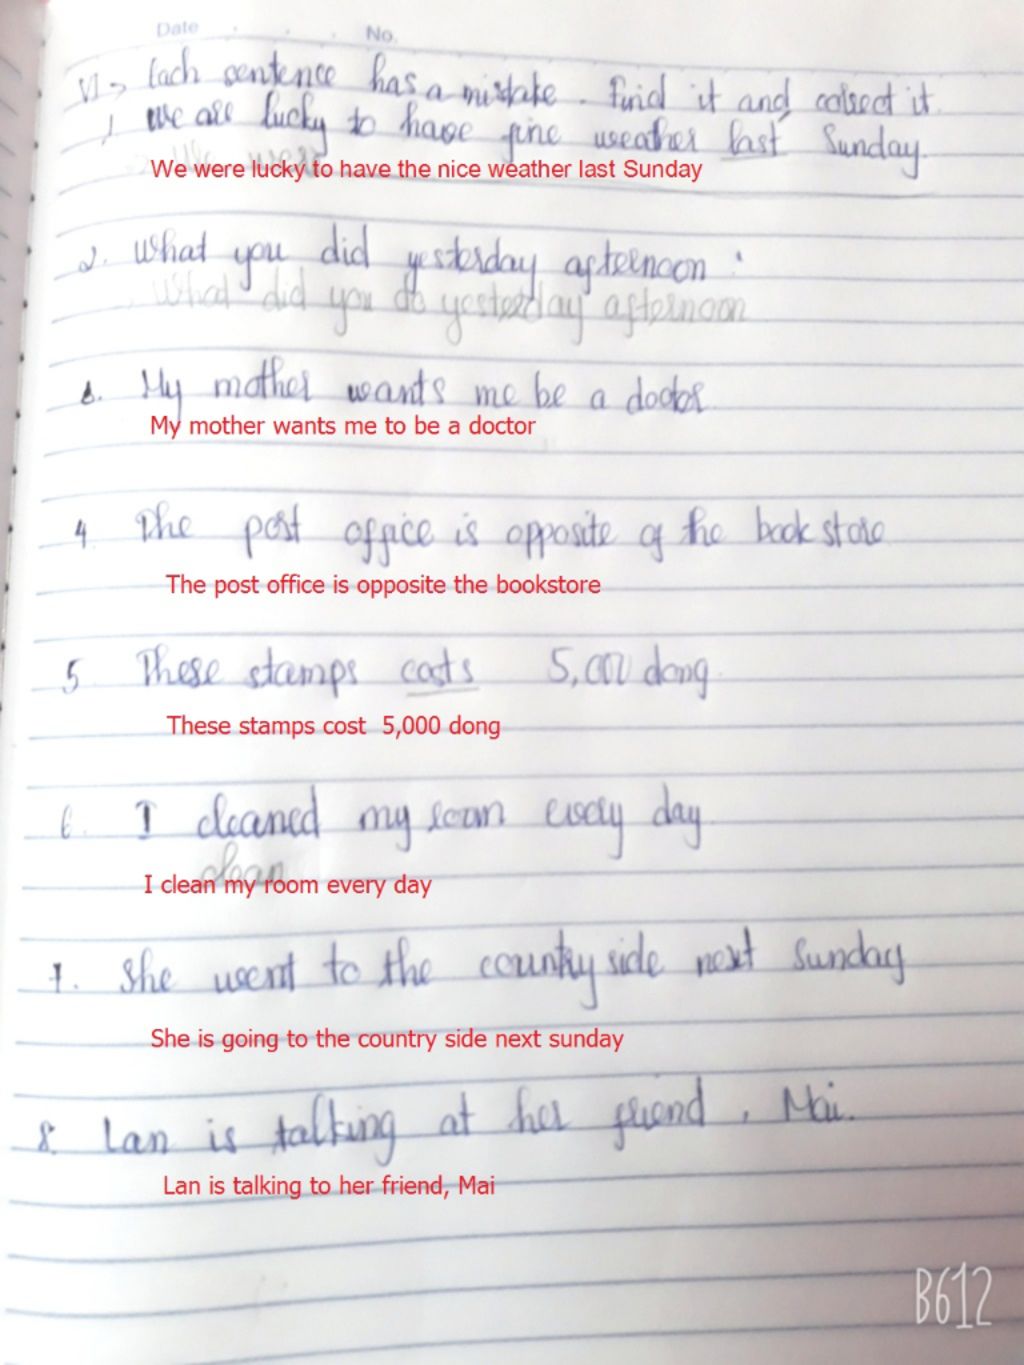 Date No.
VI > Each sentence has a mistake. Find it and correct it.
1 We are lucky to have fine weather last Sunday.
We were
We were lucky to have the nice weather last Sunday
2. What you did yesterday afternoon
What did you do yesterday afternoon
3. My mother wants me be a doctor.
My mother wants me to be a doctor
4 The post office is opposite of the book store
The post office is opposite the bookstore
5 These stamps costs 5,000 dong.
These stamps cost 5,000 dong
6. I cleaned my room every day.
clean
I clean my room every day
7. She went to the country side next Sunday
She is going to the country side next sunday
8. Lan is talking at her friend, Mai.
Lan is talking to her friend, Mai
B612